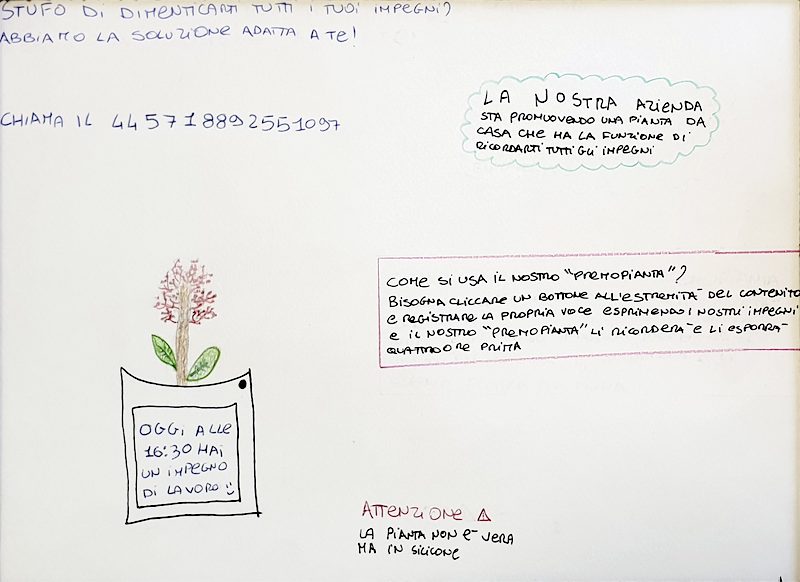 STUFO DI DIMENTICARTI TUTTI I TUOI IMPEGNI?
ABBIAMO LA SOLUZIONE ADATTA A TE!
CHIAMA IL 445718892551097
LA NOSTRA AZIENDA
STA PROMUOVENDO UNA PIANTA DA
CASA CHE HA LA FUNZIONE DI
RICORDARTI TUTTI GLI IMPEGNI
COME SI USA IL NOSTRO "PREMOPIANTA"?
BISOGNA CLICCARE UN BOTTONE ALL'ESTREMITÀ DEL CONTENITO
E REGISTRARE LA PROPRIA VOCE ESPRIMENDO I NOSTRI IMPEGNI
E IL NOSTRO "PREMOPIANTA" LI RICORDERÀ E LI ESPORRÀ
QUATTRO ORE PRIMA
OGGI ALLE
16:30 HAI
UN IMPEGNO
DI LAVORO :)
ATTENZIONE ⚠
LA PIANTA NON È VERA
MA IN SILICONE